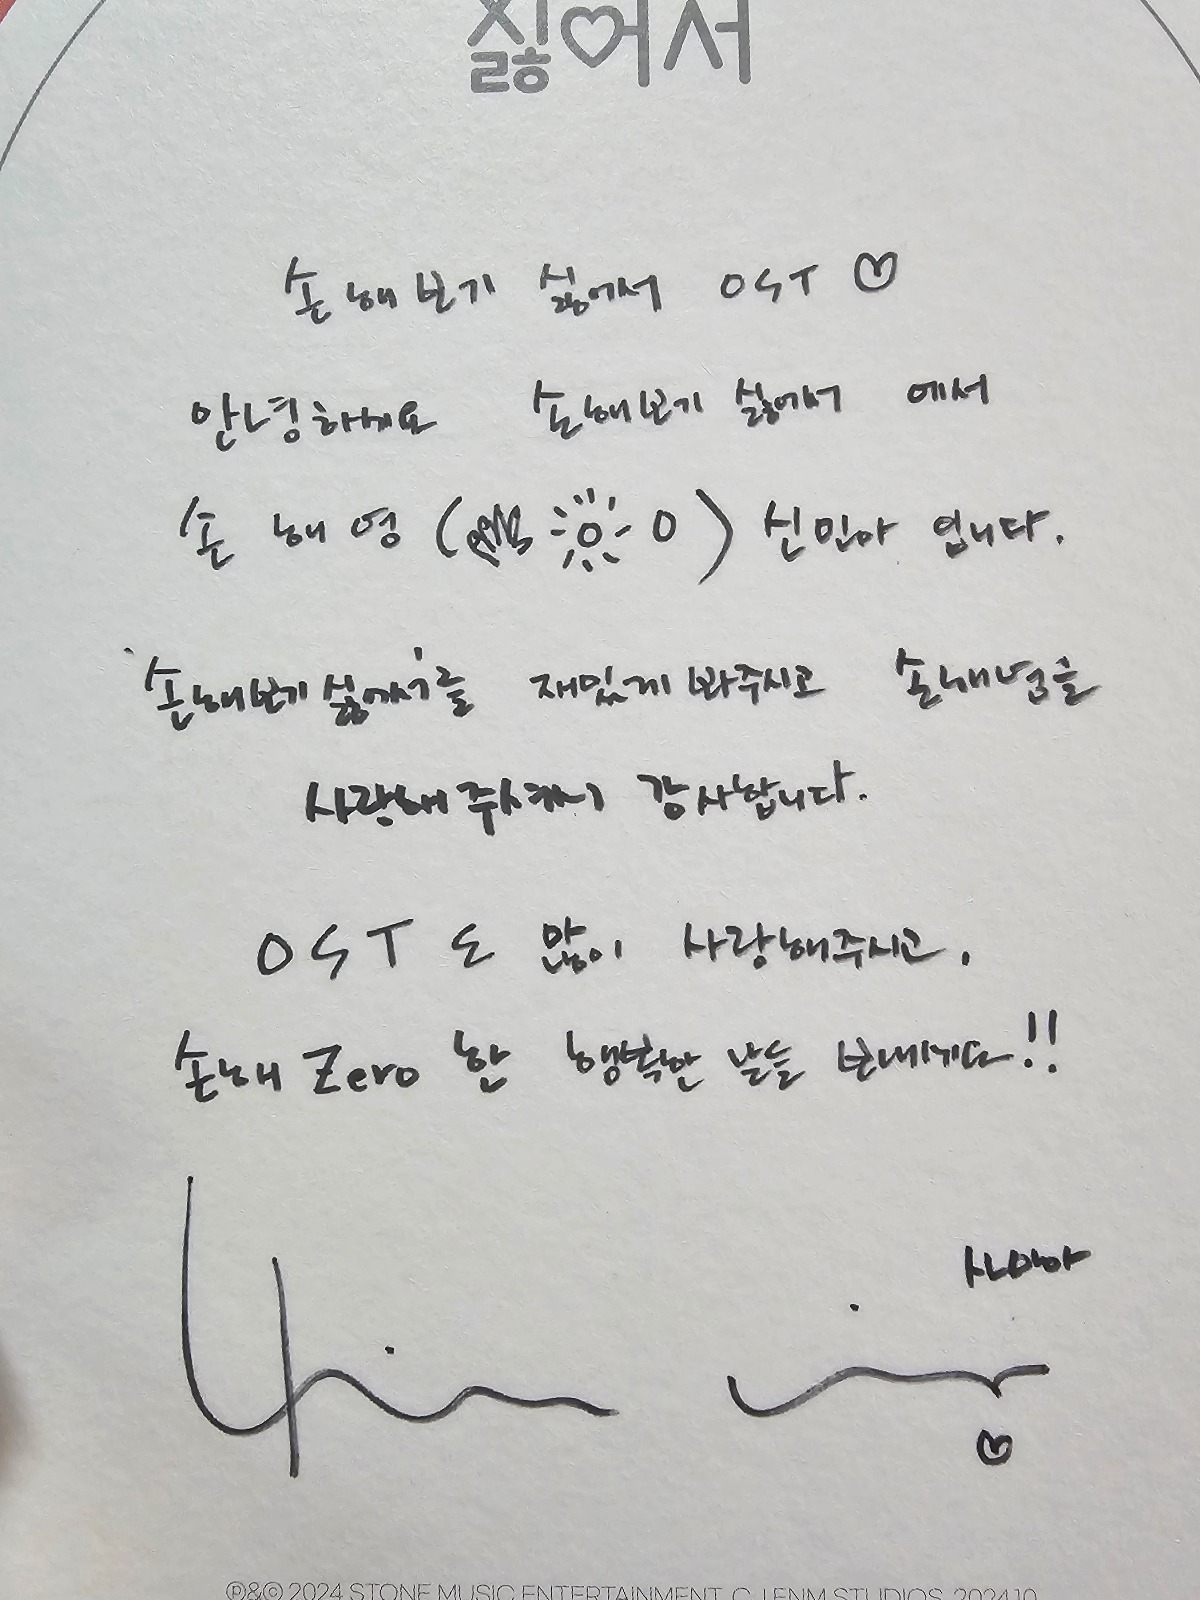 싫어서
손해 보기 싫어서 OST ♡
안녕하세요 손해보기 싫어서 에서
손해영 ( O ) 신민아 입니다.
'손해보기 싫어서'를 재밌게 봐주시고 손해영을
사랑해 주셔서 감사합니다.
OST도 많이 사랑해주시고,
손해 Zero 한 행복한 날들 보내세요!!
신민아
Ⓟ&ⓒ 2024 STONE MUSIC ENTERTAINMENT, CJ ENM STUDIOS, 2024.10